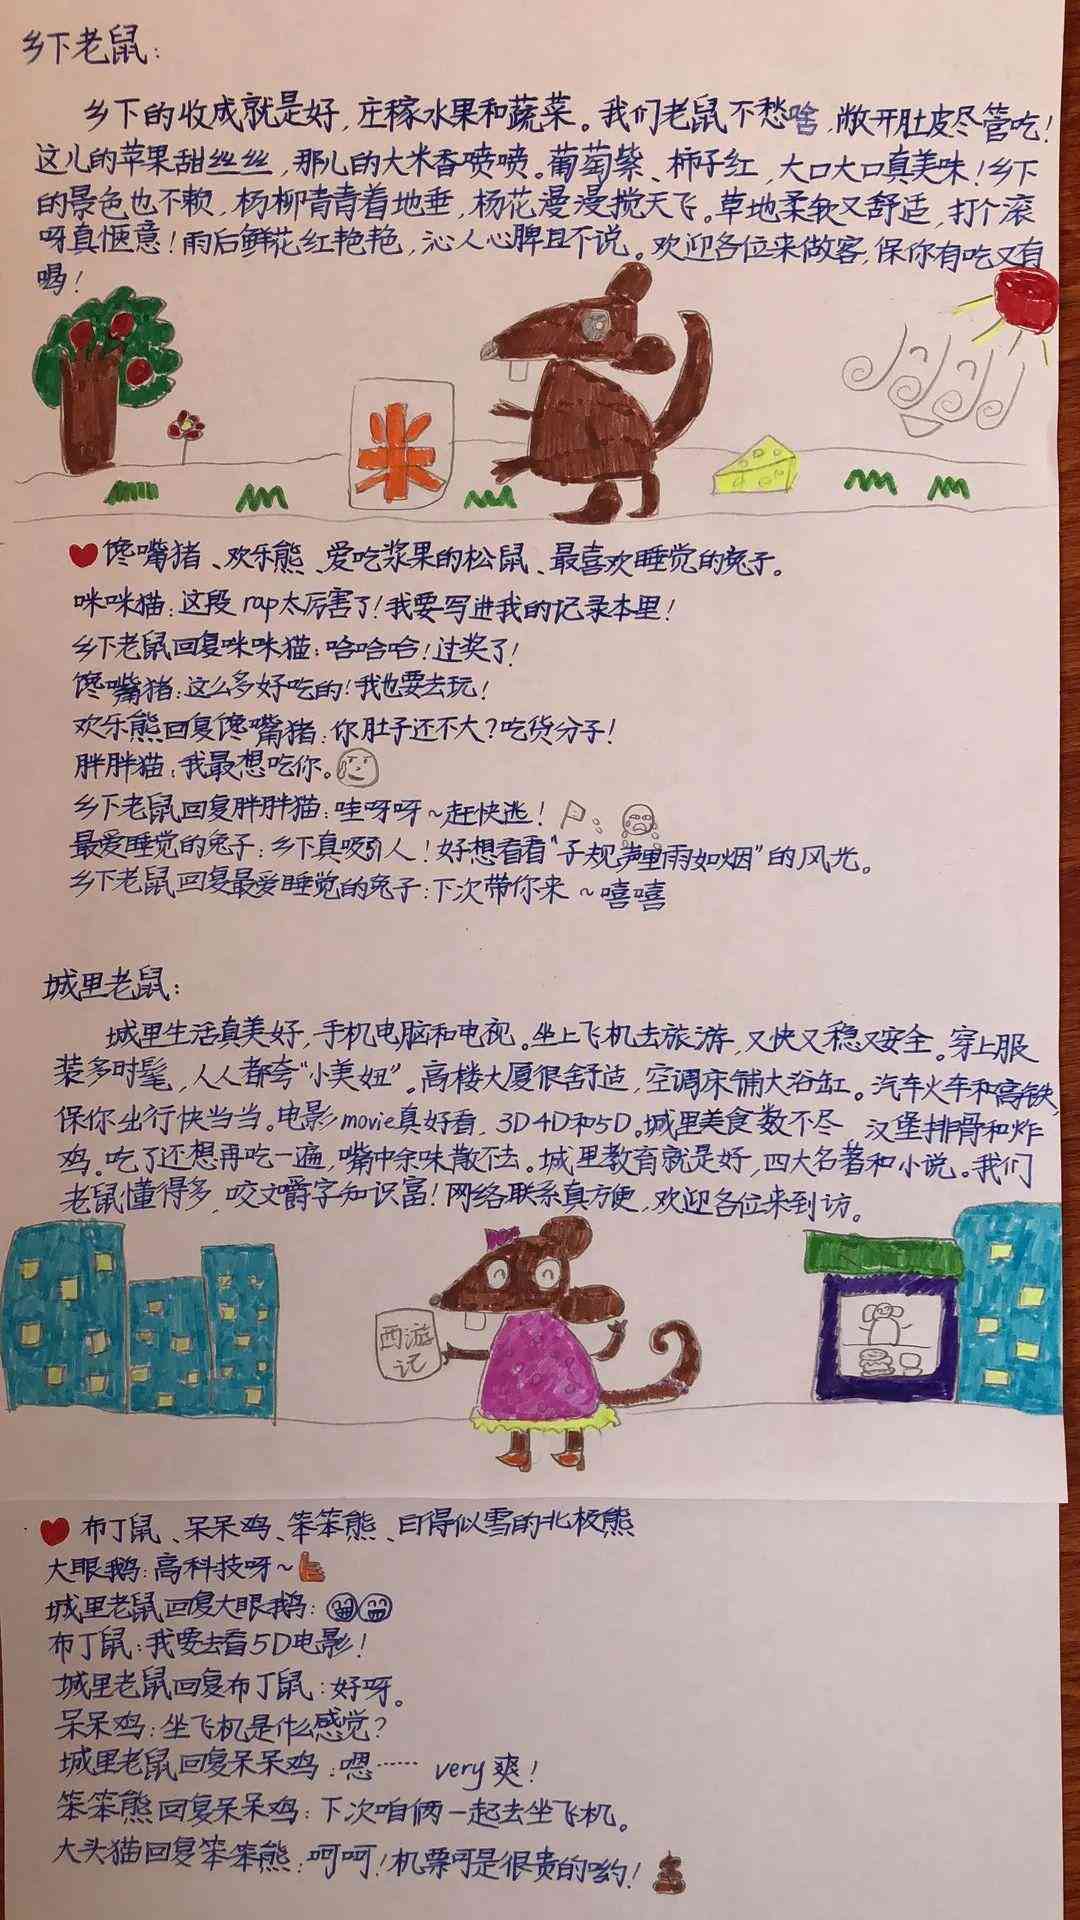 乡下老鼠：
乡下的收成就是好，庄稼水果和蔬菜。我们老鼠不愁啥，敞开肚皮尽管吃！
这儿的苹果甜丝丝，那儿的大米香喷喷。葡萄紫、柿子红，大口大口真美味！乡下
的景色也不赖，杨柳青青着地垂，杨花漫漫搅天飞。草地柔软又舒适，打个滚
呀真惬意！雨后鲜花红艳艳，沁人心脾且不说。欢迎各位来做客，保你有吃又有
喝！
米
馋嘴猪、欢乐熊、爱吃浆果的松鼠、最喜欢睡觉的兔子。
咪咪猫：这段rap太厉害了！我要写进我的记录本里！
乡下老鼠回复咪咪猫：哈哈哈！过奖了！
馋嘴猪：这么多好吃的！我也要去玩！
欢乐熊回复馋嘴猪：你肚子还不大？吃货分子！
胖胖猫：我最想吃你。
乡下老鼠回复胖胖猫：哇呀呀~赶快逃！
最爱睡觉的兔子：乡下真吸引人！好想看看“子规声里雨如烟”的风光。
乡下老鼠回复最爱睡觉的兔子：下次带你来~嘻嘻
城里老鼠：
城里生活真美好，手机电脑和电视。坐上飞机去旅游，又快又稳又安全。穿上服
装多时髦，人人都夸“小美妞”。高楼大厦很舒适，空调床铺大浴缸。汽车火车和高铁，
保你出行快当当。电影movie真好看，3D4D和5D。城里美食数不尽，汉堡排骨和炸
鸡。吃了还想再吃一遍，嘴中余味散不去。城里教育就是好，四大名著和小说。我们
老鼠懂得多，咬文嚼字知识富！网络联系真方便，欢迎各位来到访。
西游
记
布丁鼠、呆呆鸡、笨笨熊、白得似雪的北极熊
大眼鹅：高科技呀~
城里老鼠回复大眼鹅：
布丁鼠：我要去看5D电影！
城里老鼠回复布丁鼠：好呀。
呆呆鸡：坐飞机是什么感觉？
城里老鼠回复呆呆鸡：嗯…… very爽！
笨笨熊回复呆呆鸡：下次咱俩一起去坐飞机。
大头猫回复笨笨熊：呵呵！机票可是很贵的哟！